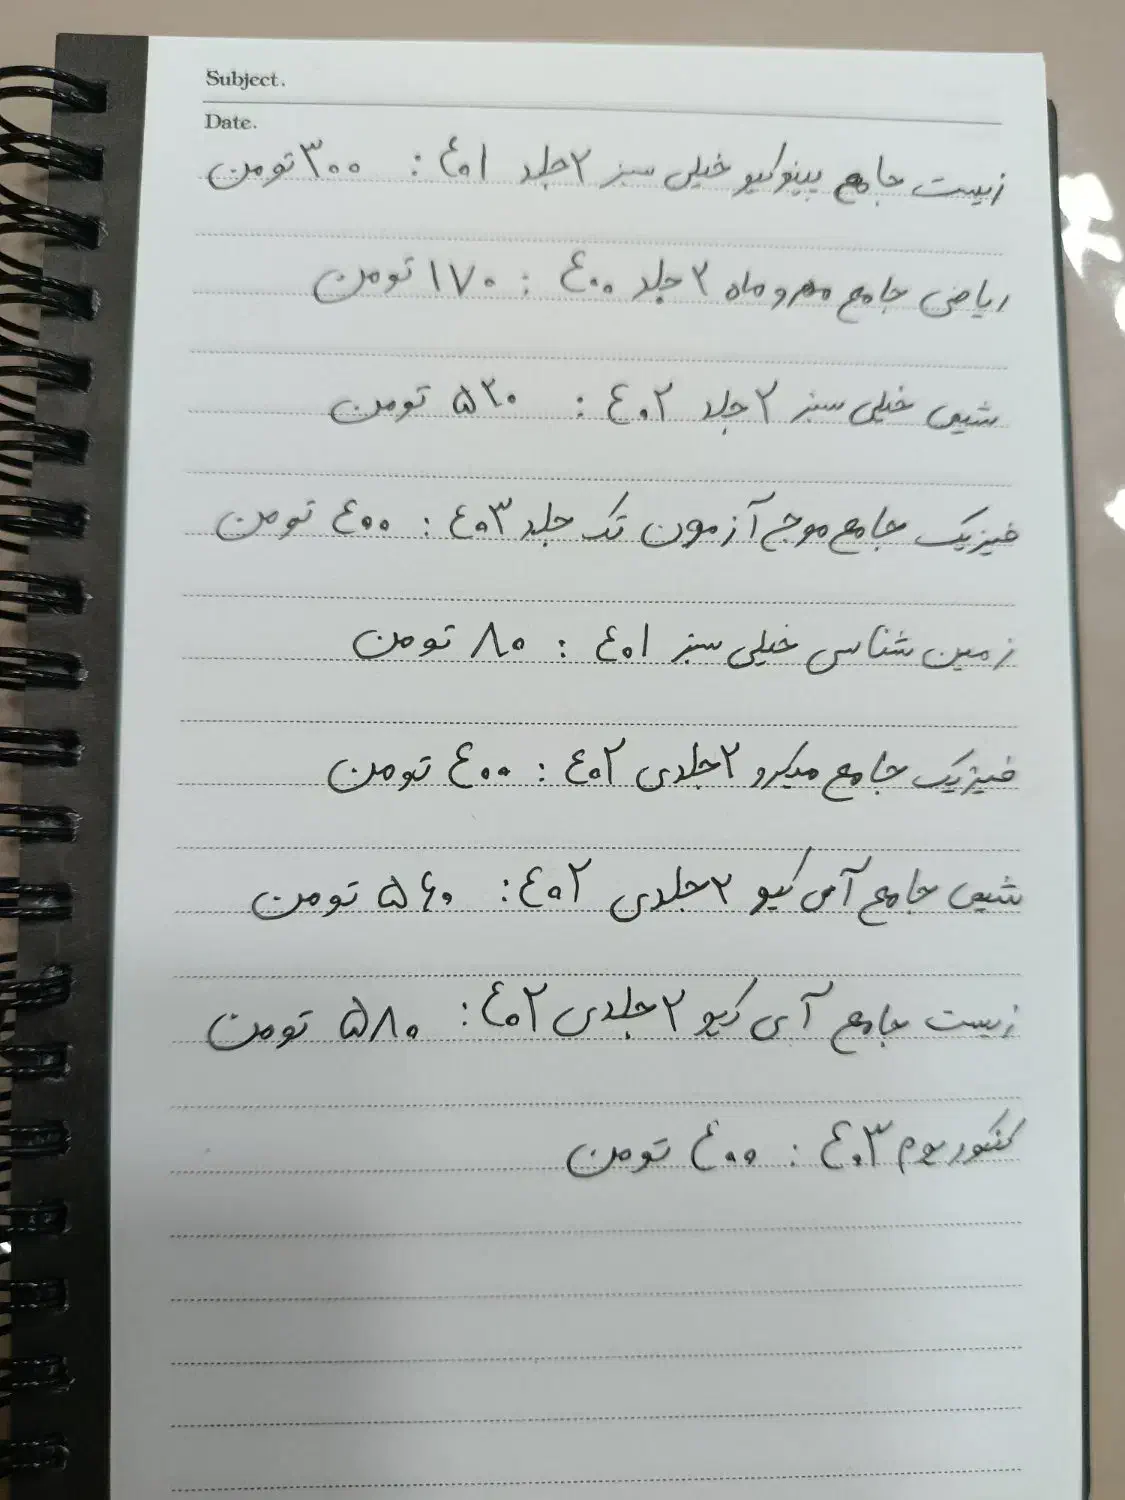 Subject.
Date.
زیست جامع پینوکیو خیلی سبز ۲ جلد ۴۰۱ : ۳۰۰ تومن
ریاضی جامع مهروماه ۲ جلد ۴۰۰ : ۱۷۰ تومن
شیمی خیلی سبز ۲ جلد ۴۰۲ : ۵۲۰ تومن
فیزیک جامع موج آزمون تک جلد ۴۰۳ : ۴۰۰ تومن
زمین شناسی خیلی سبز ۴۰۱ : ۸۰ تومن
فیزیک جامع میکرو ۲ جلدی ۴۰۲ : ۴۰۰ تومن
شیمی جامع آی کیو ۲ جلدی ۴۰۲ : ۵۶۰ تومن
زیست جامع آی کیو ۲ جلدی ۴۰۲ : ۵۸۰ تومن
کنکوریوم ۴۰۳ : ۴۰۰ تومن